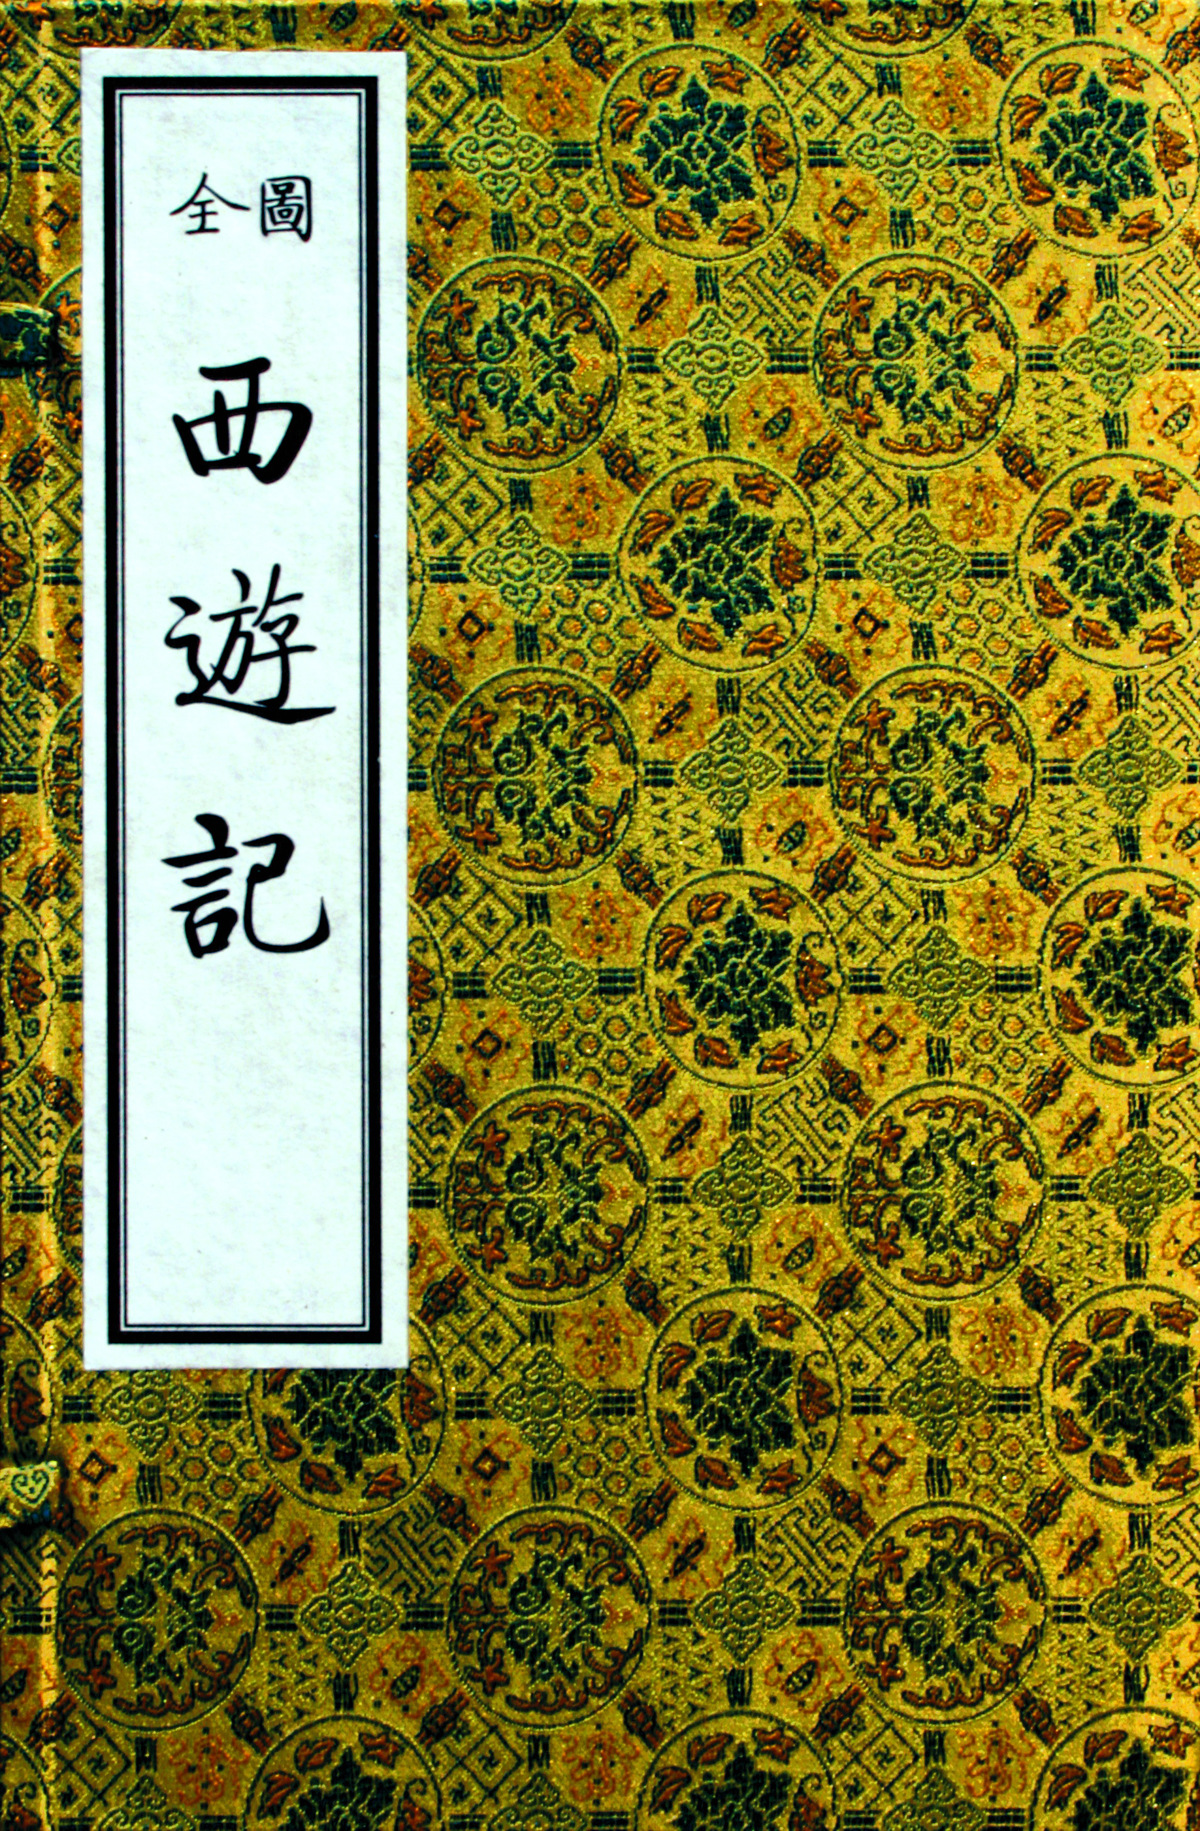 全圖
西遊記